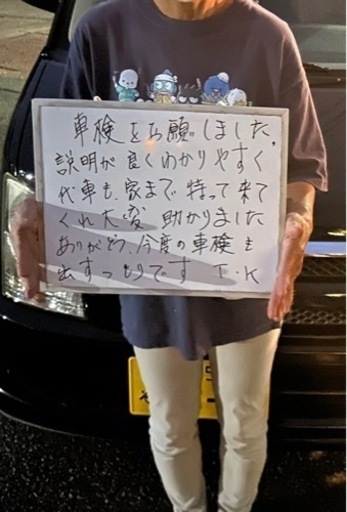 車検をお願いしました。
説明が良くわかりやすく
代車も、家まで持って来て
くれ大変助かりました
ありがとう、今度の車検も
出すつもりです T.K